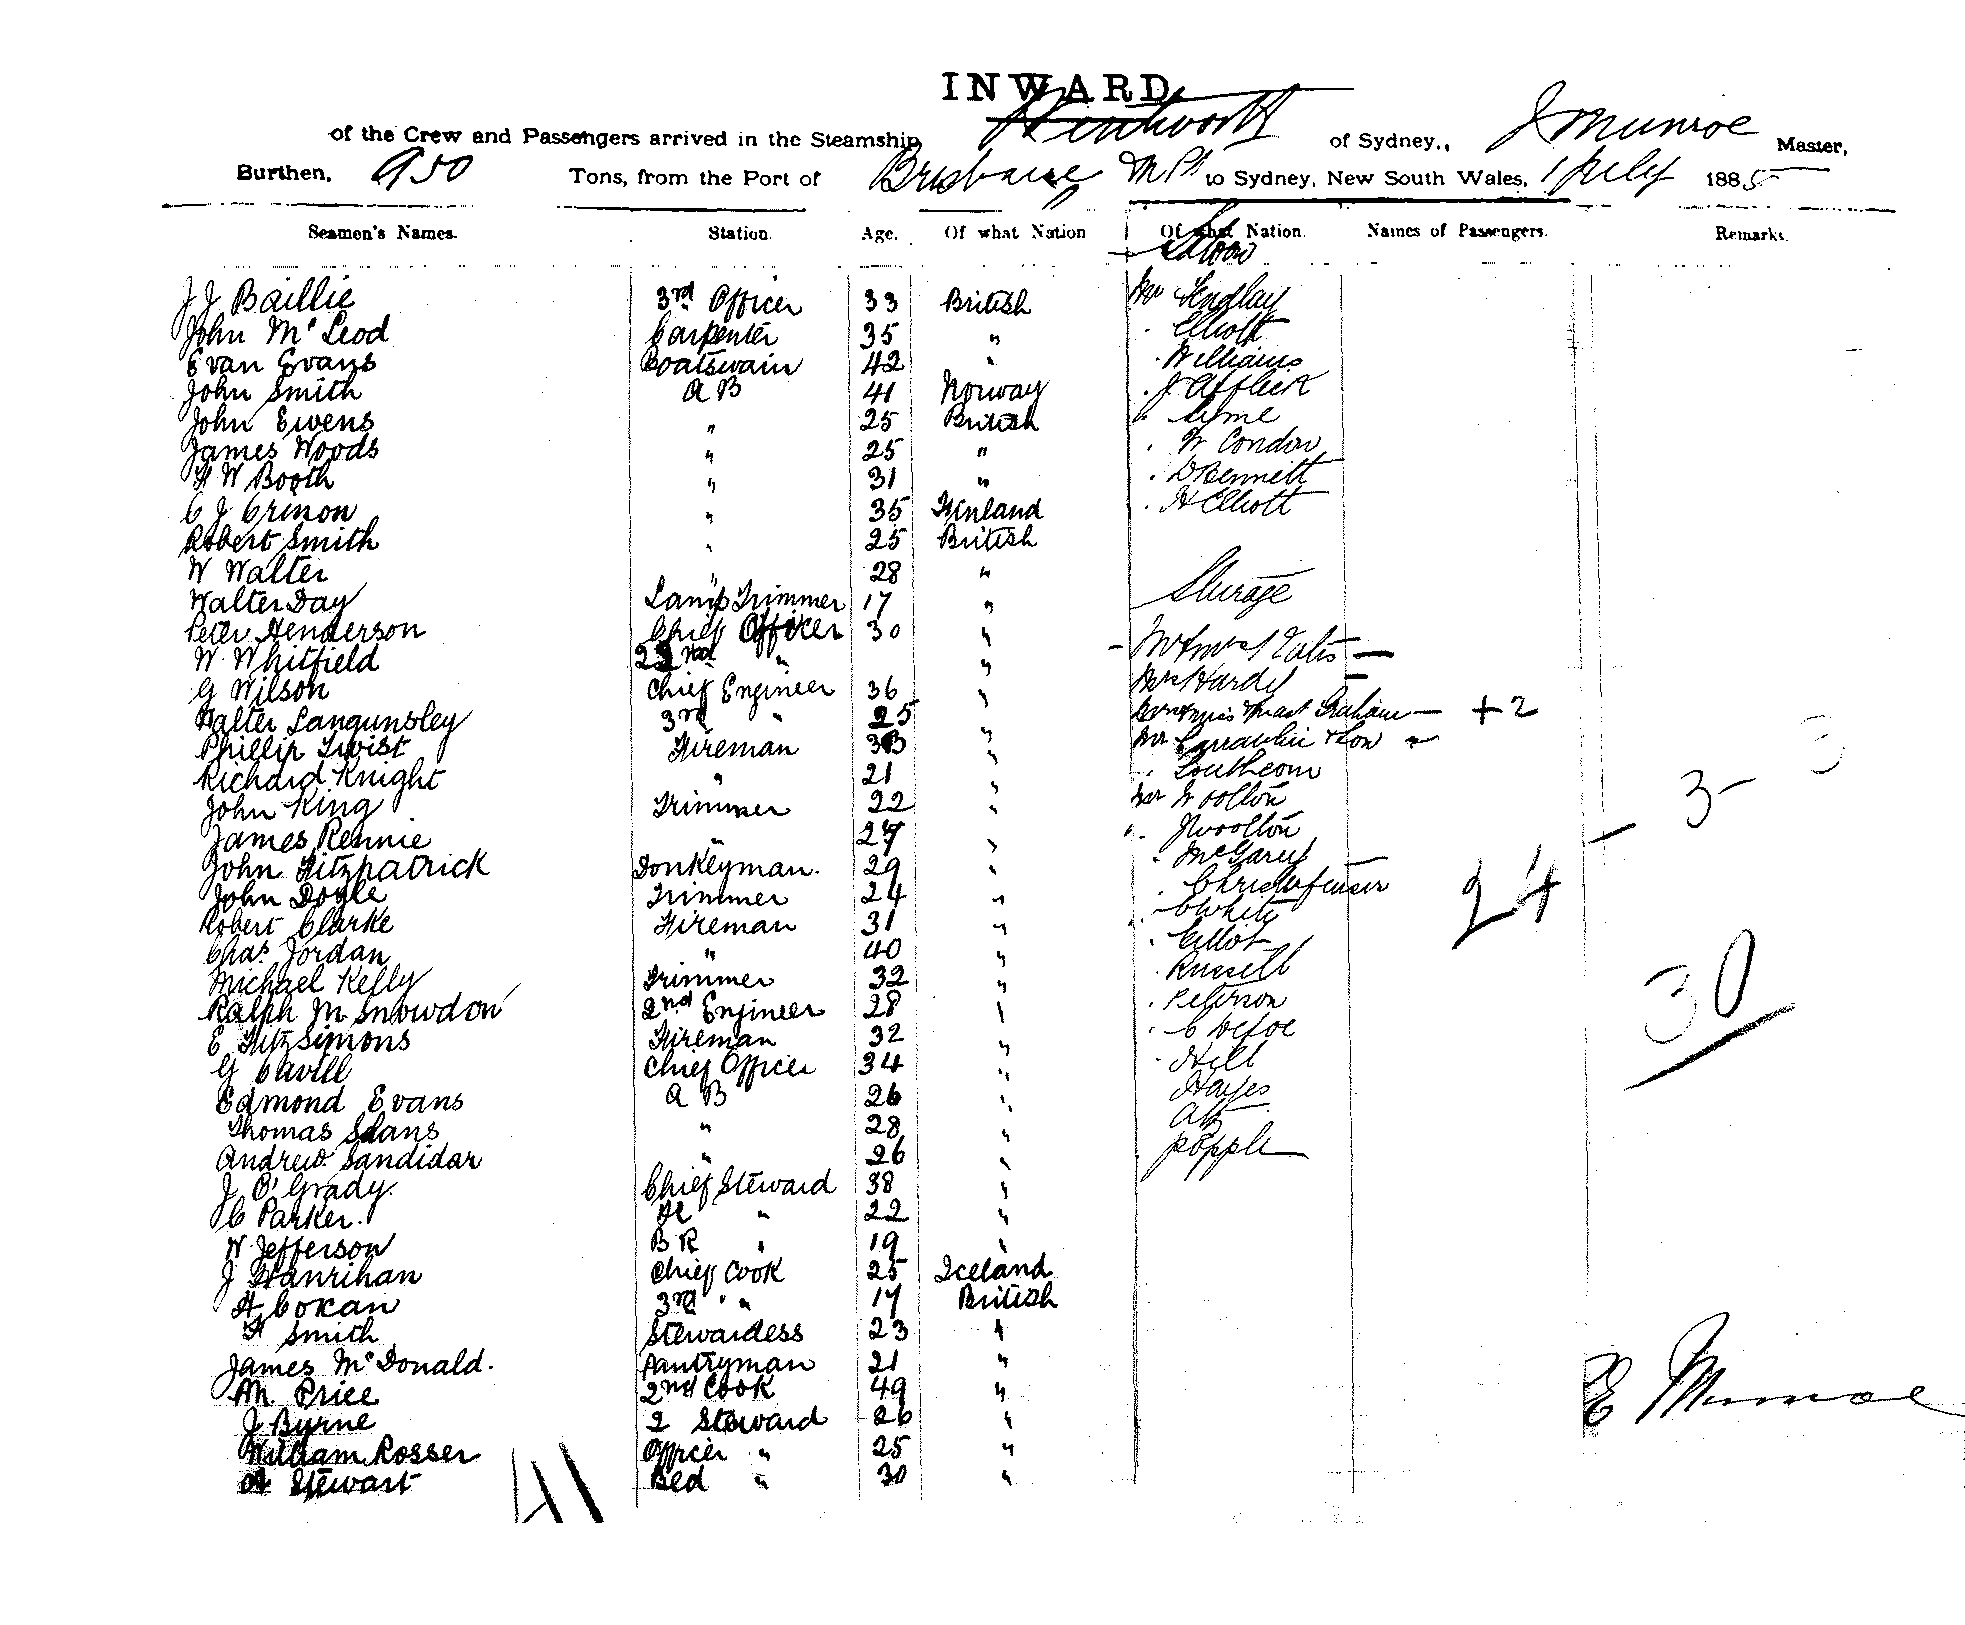 INWARD
of the Crew and Passengers arrived in the Steamship Wentworth of Sydney,, J Munroe Master,
Burthen, 950 Tons, from the Port of Brisbane to Sydney, New South Wales, 1 July 1885
Seamen's Names. Station. Age. Of what Nation Of what Nation. Names of Passengers. Remarks.
Saloon
J J Baillie 3rd Officer 33 British Mr Findlay
John Mc Leod Carpenter 35 " " Elliott
Evan Evans Boatswain 42 " " Williams
John Smith A B 41 Norway " J Affleck
John Ewens " 25 British " Lyme
James Woods " 25 " " W Condon
H W Booth " 31 " " D Bennett
C J Crinon " 35 Finland " H Elliott
Robert Smith " 25 British
W Walter " 28 "
Steerage
Walter Day Lamp Trimmer 17 "
Peter Henderson Chief Officer 30 "
W Whitfield 2nd " " Mr & Mrs Yates
G Wilson Chief Engineer 36 " Mrs Hardy
Walter Langunsley 3rd " 25 " Graham + 2
Phillip Twist Fireman 33 " & Son
Richard Knight " 21 " " Southcom
John King Trimmer 22 " Mr Woolton
James Rennie " 27 " " J Woolton 3
John Fitzpatrick Donkeyman. 29 " " McGarry
John Doyle Trimmer 24 " " Christofensen 24
Robert Clarke Fireman 31 " " C White
Chas. Jordan " 40 " " Elliot
Michael Kelly Trimmer 32 " " Russell
Ralph M Snowdon 2nd Engineer 28 " " Peterson 30
E Fitzsimons Fireman 32 " " C Defoe
G Cavill Chief Officer 34 " " Hill
Edmond Evans A B 26 " Hayes
Thomas Slans " 28 "
Andrew Sandidar " 26 " Popple
J O'Grady. Chief Steward 38 "
C Parker. " 22 "
W Jefferson B R " 19 "
J Hanrihan Chief Cook 25 Iceland
H Cokan 3rd " 17 British
H Smith Stewardess 23 "
James Mc Donald. Pantryman 21 "
M Price 2nd Cook 49 "
J Byrne 2 Steward 26 "
William Rosser Officer " 25 "
A Stewart Bed " 30 "
41
E Munroe